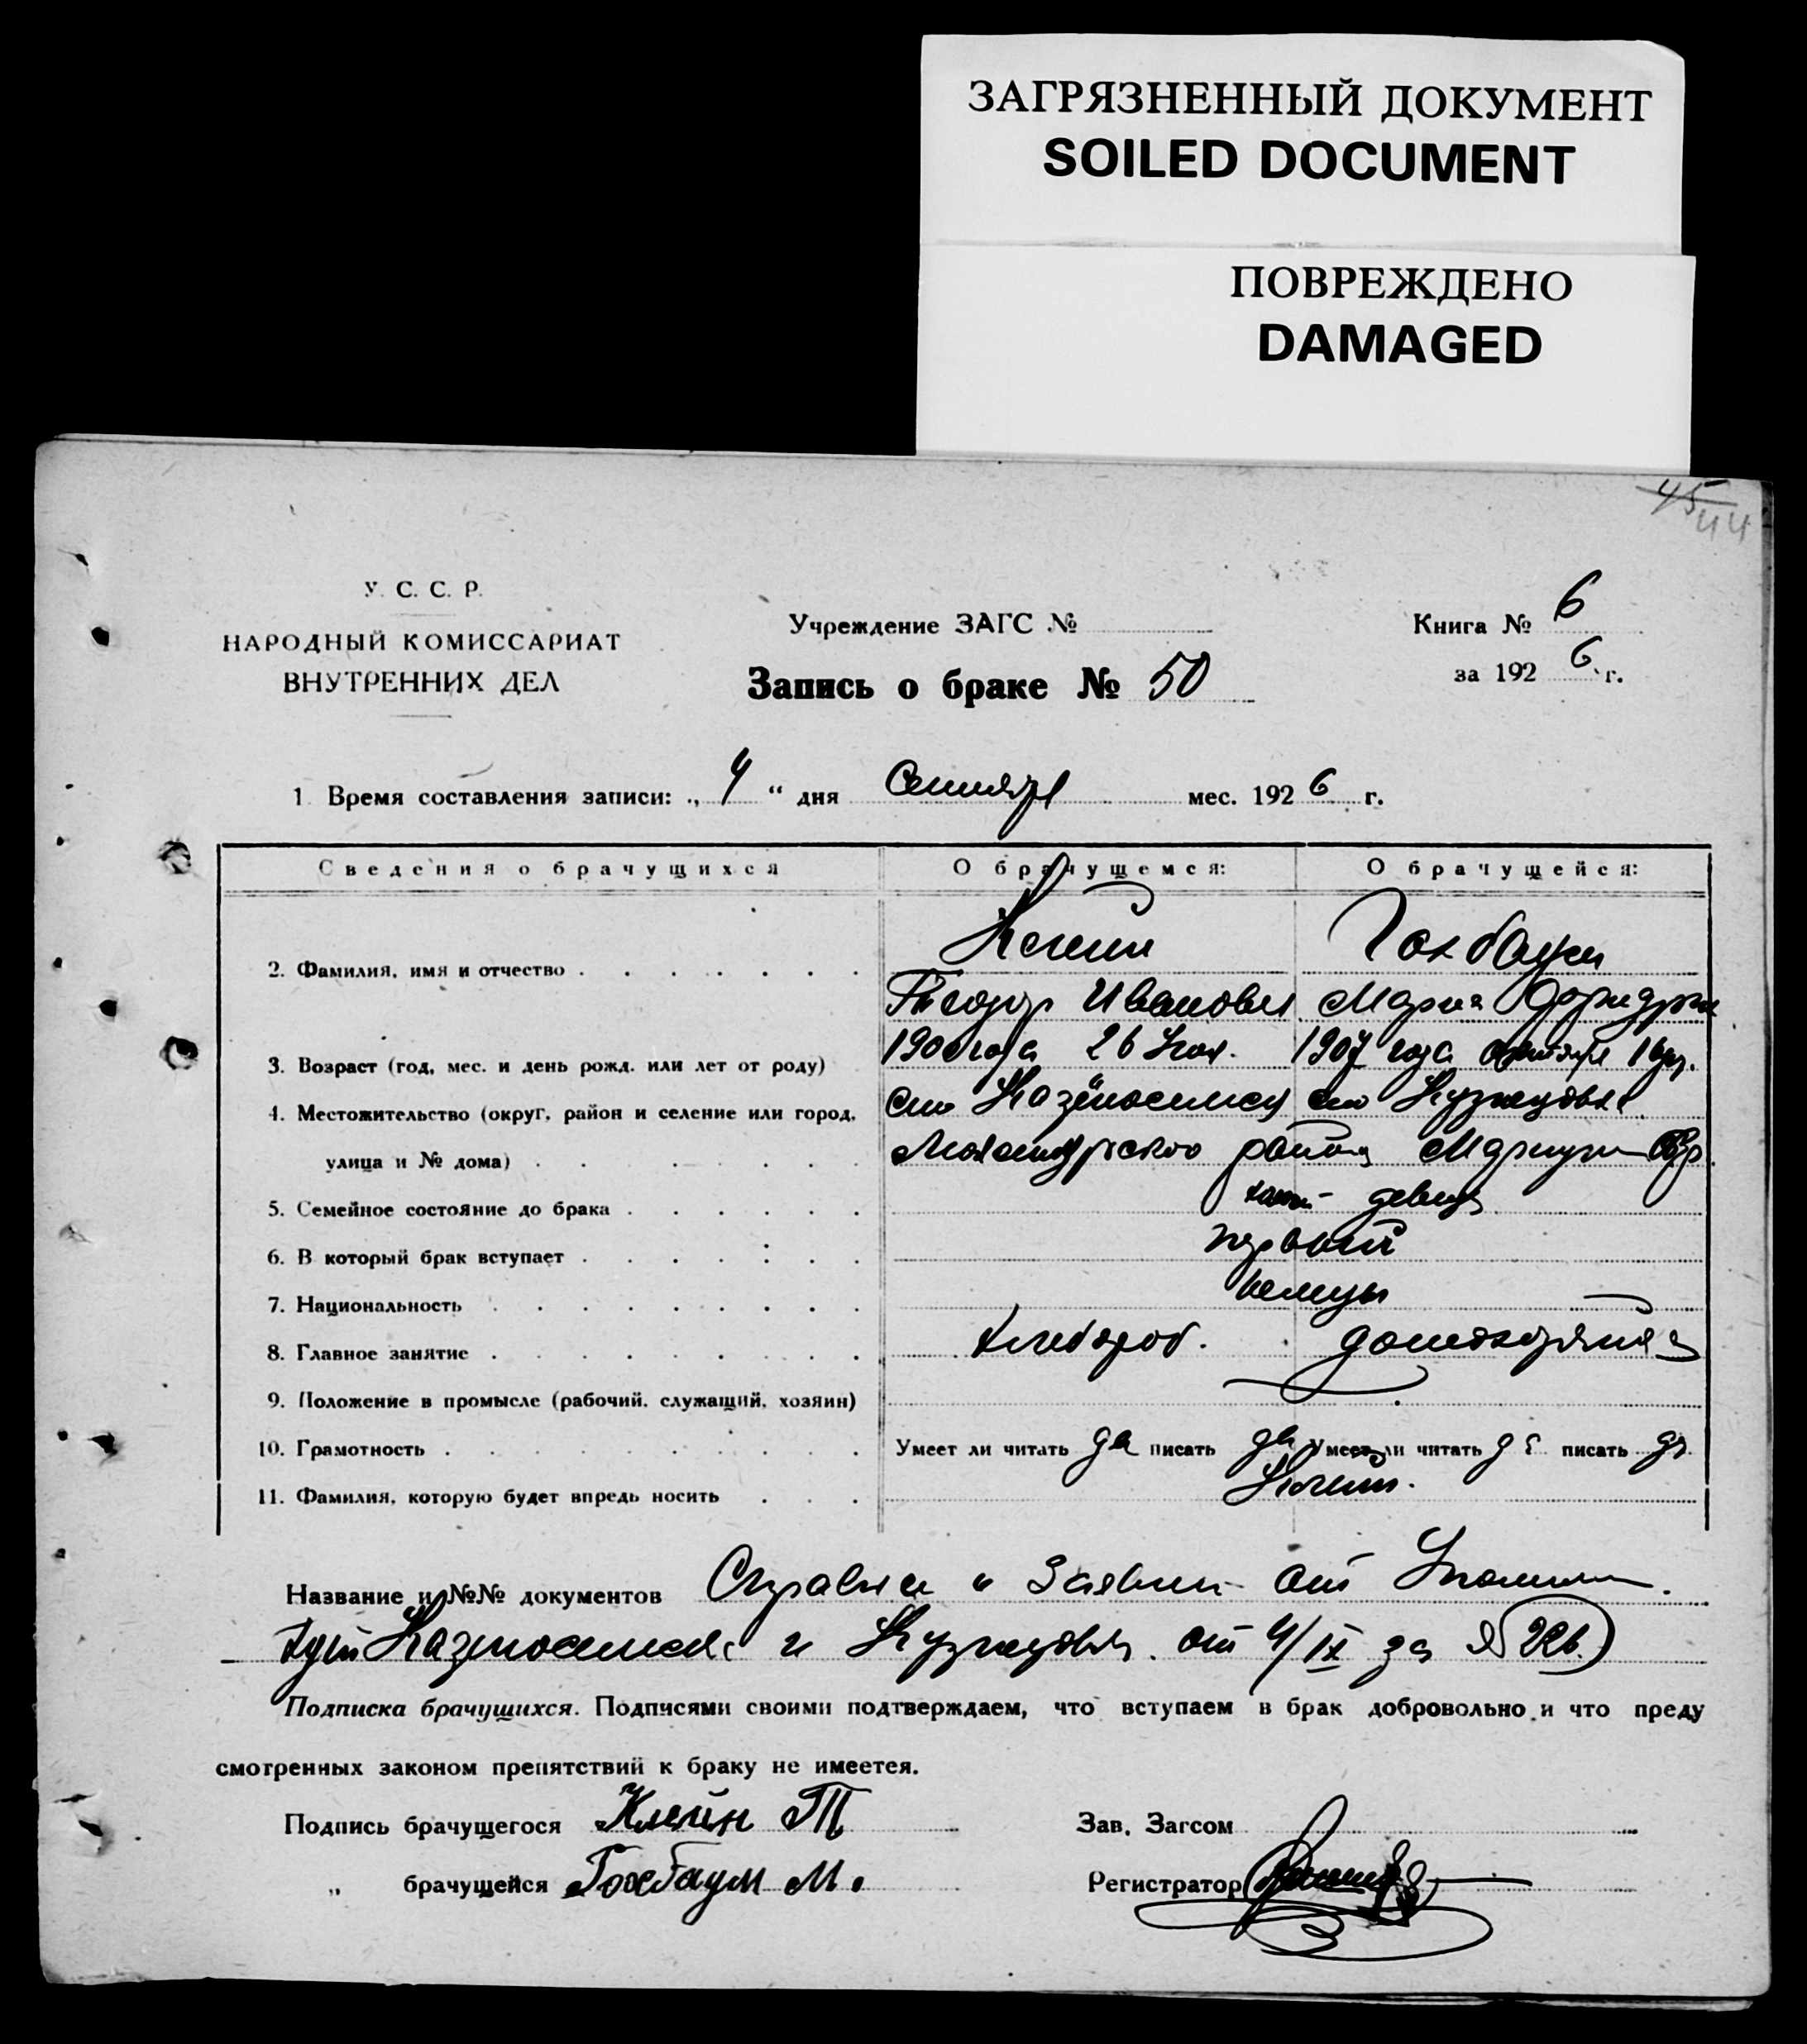 ЗАГРЯЗНЕННЫЙ ДОКУМЕНТ
SOILED DOCUMENT
ПОВРЕЖДЕНО
DAMAGED
45
44
У. С. С. Р.
НАРОДНЫЙ КОМИССАРИАТ
ВНУТРЕННИХ ДЕЛ
Учреждение ЗАГС №
Запись о браке № 50
Книга № 6
за 1926 г.
1. Время составления записи: „4“ дня Сентября мес. 1926 г.
Сведения о брачущихся О брачущемся: О брачущейся:
Клейн Гохбаум
2. Фамилия, имя и отчество
Теодор Иванович Мария Фридрих
3. Возраст (год, мес. и день рожд. или лет от роду) 1900 года 26 Ноя. 1907 года
4. Местожительство (округ, район и селение или город, село
улица и № дома) района Мариуп Окр.
5. Семейное состояние до брака холост девица
6. В который брак вступает первый
7. Национальность немцы
8. Главное занятие хлебороб. домохозяйка
9. Положение в промысле (рабочий, служащий, хозяин)
10. Грамотность Умеет ли читать да писать да Умеет ли читать да писать да
11. Фамилия, которую будет впредь носить Клейн.
Название и №№ документов Справки и от
и от 4/IX за №
Подписка брачущихся. Подписями своими подтверждаем, что вступаем в брак добровольно и что преду
смотренных законом препятствий к браку не имеется.
Подпись брачущегося Клейн Т
Зав. Загсом
„ брачущейся Гохбаум М.
Регистратор